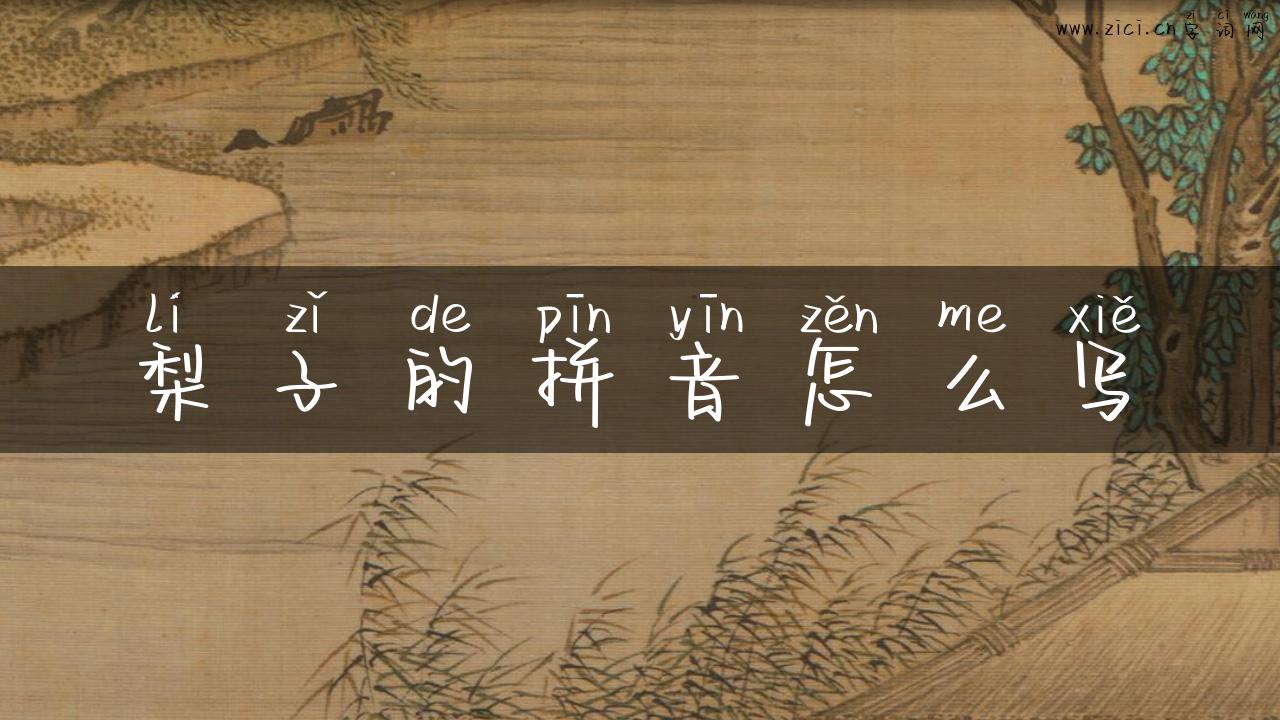 zì cí wǎng
www.zici.cn字词网
lí zǐ de pīn yīn zěn me xiě
梨子的拼音怎么写